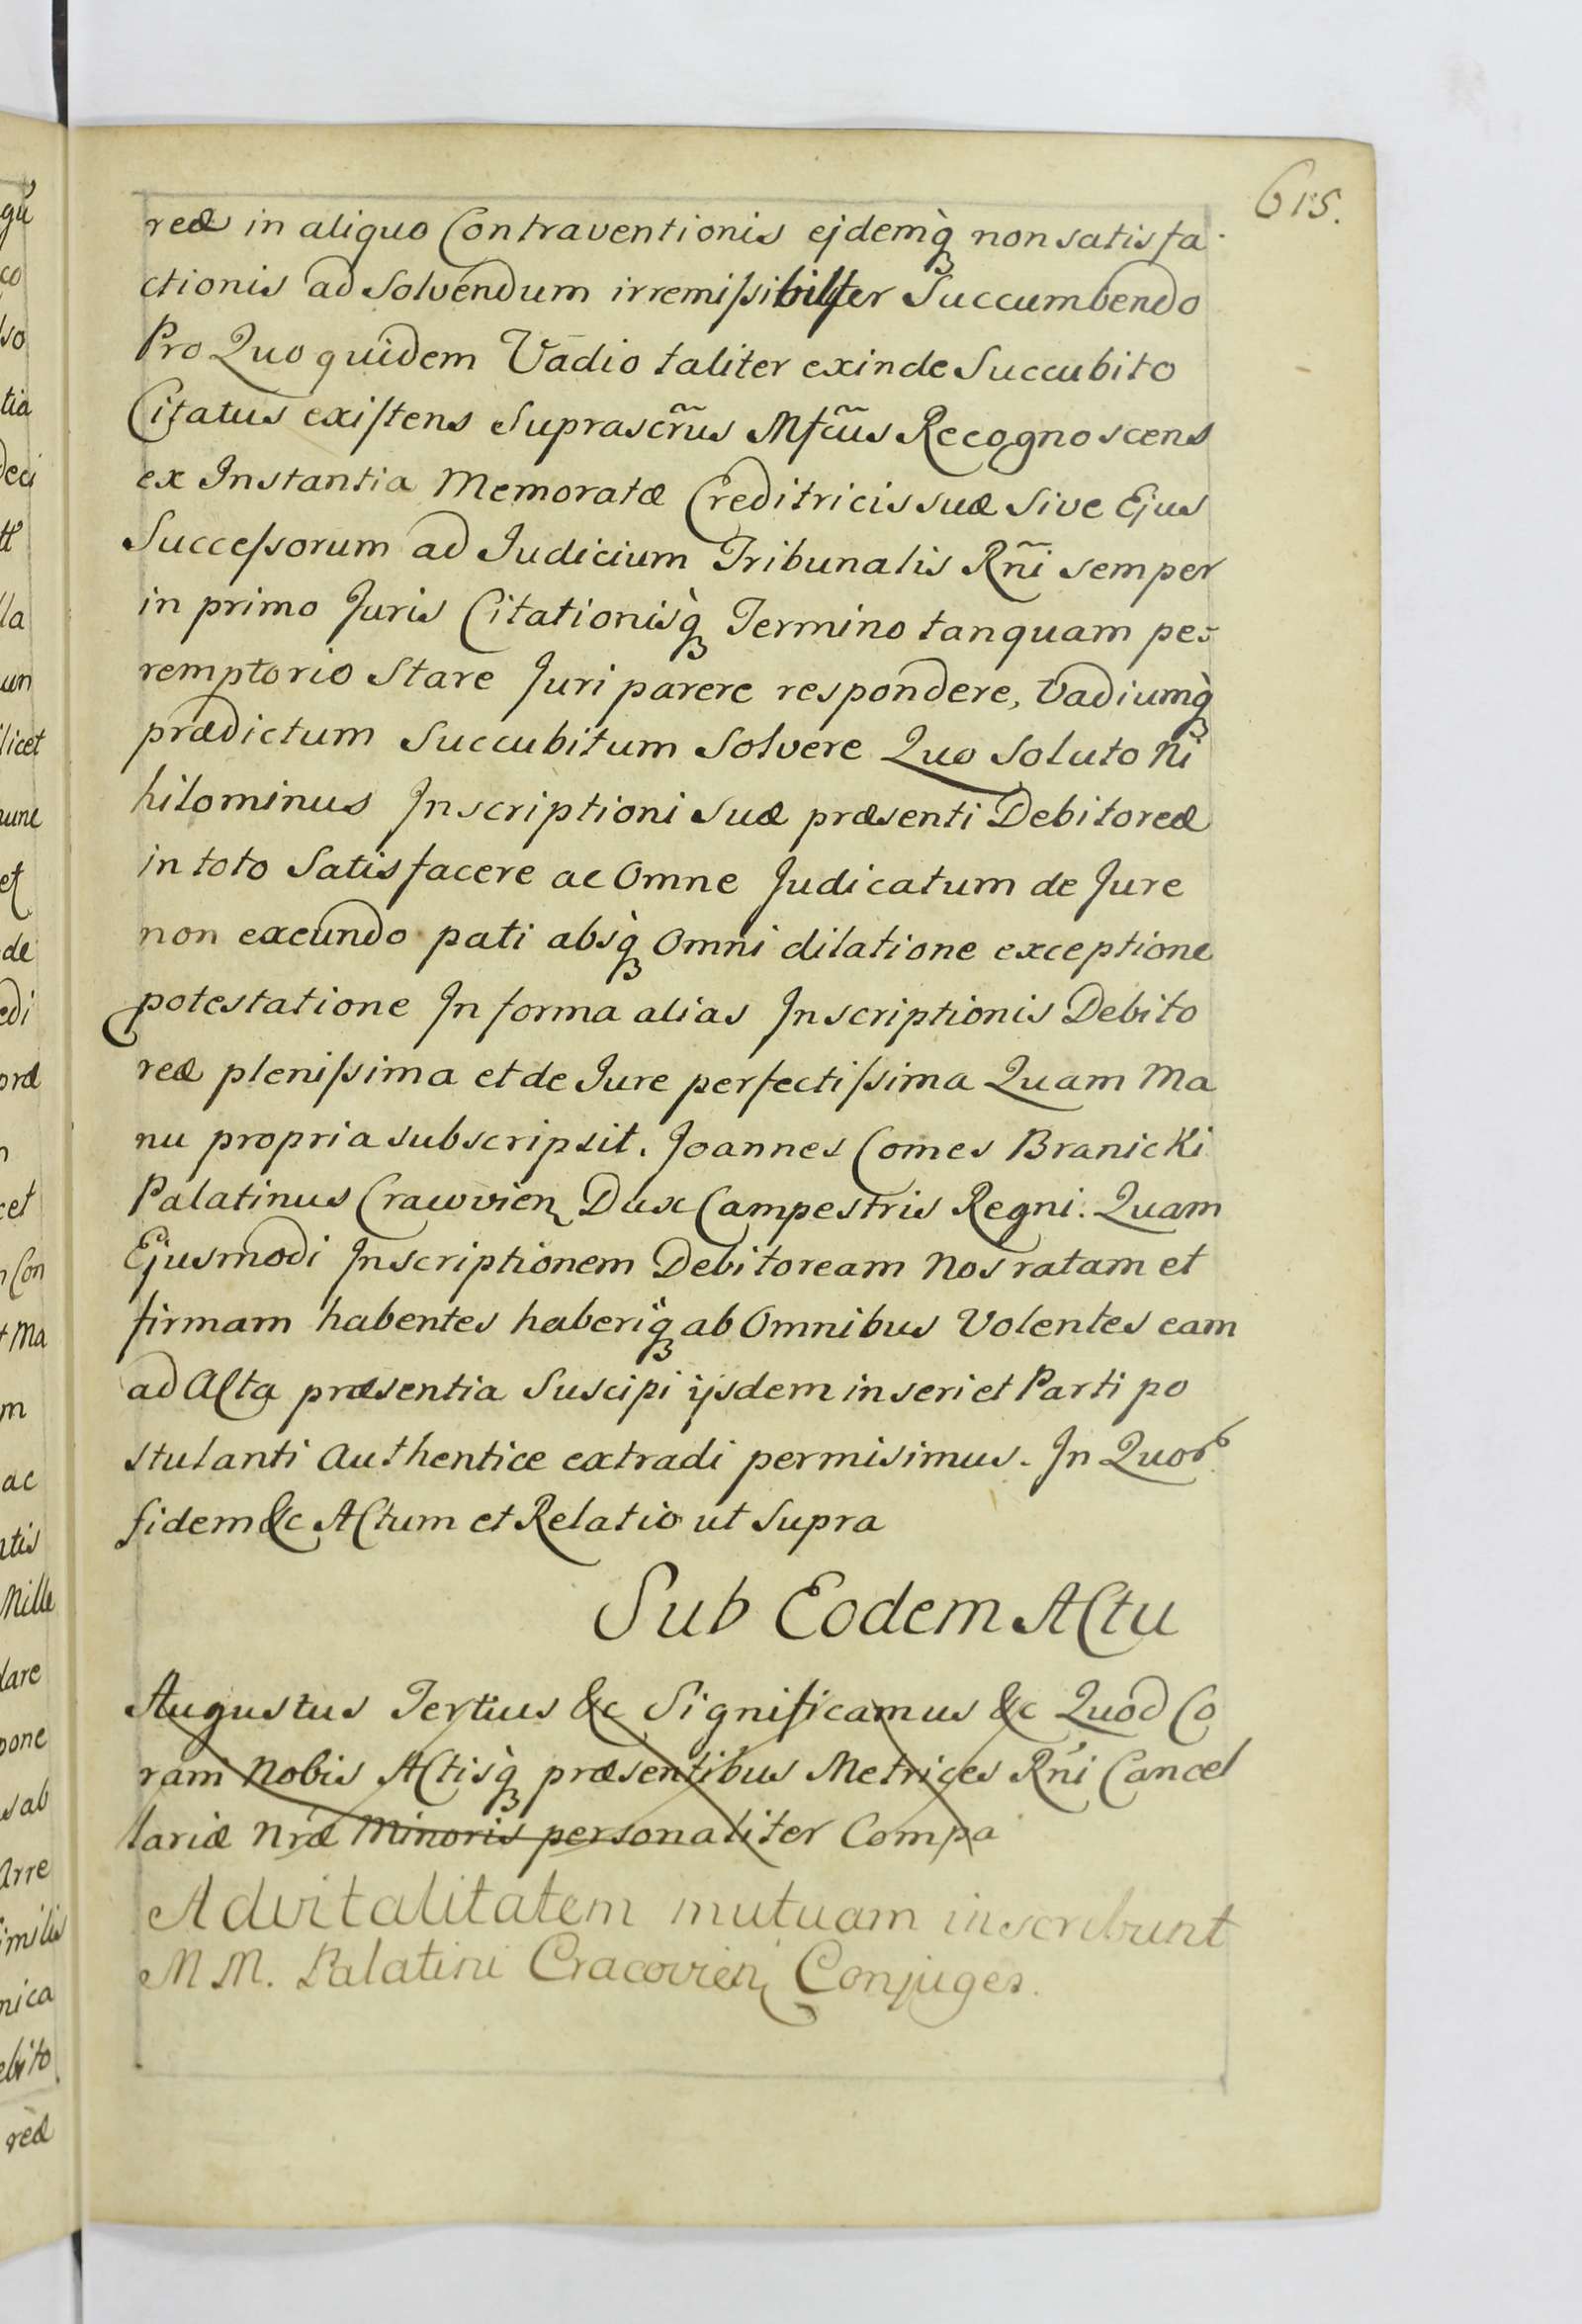 615.
reæ in aliquo Contraventionis ejdemq̀ȝ non satisfa-
ctionis ad Solvendum irremissibiliter Succumbendo
Pro Quo quidem Vadio taliter exinde Succubito
Citatus existens Suprascr̃us Mfc̃us Recognoscens
ex Instantia Memoratæ Creditricis suæ Sive Ejus
Successorum ad Judicium Tribunalis Rñi semper
in primo Juris Citationisq̀ȝ Termino tanquam pe-
remptorio Stare Juri parere respondere, Vadiumq̀ȝ
prædictum Succubitum Solvere Quo Soluto Ni
hilominus Inscriptioni Suæ præsenti Debitoreæ
in toto Satisfacere ac Omne Judicatum de Jure
non eaeundo pati absq̀ȝ Omni dilatione exceptione
potestatione In forma alias Inscriptionis Debito
reæ plenissima et de Jure perfectissima Quam Ma
nu propria subscripsit. Joannes Comes Branicki
Palatinus Cracovien Dux Campestris Regni. Quam
Ejusmodi Inscriptionem Debitoream Nos ratam et
firmam habentes haberiq̀ȝ ab Omnibus Volentes eam
ad Acta præsentia Suscipi ijsdem inseri et Parti po
stulanti Authentice extradi permisimus. In Quor
fidem &c Actum et Relatio ut Supra
Sub Eodem Actu
Augustus Tertius &c Significamus &c Quod Co
ram Nobis Actisq̀ȝ præsentibus Metrices Rñi Cancel
lariæ Nræ Minoris personaliter Compa
Advitalitatem mutuam inscribunt
M M. Palatini Cracovien Conjuges.